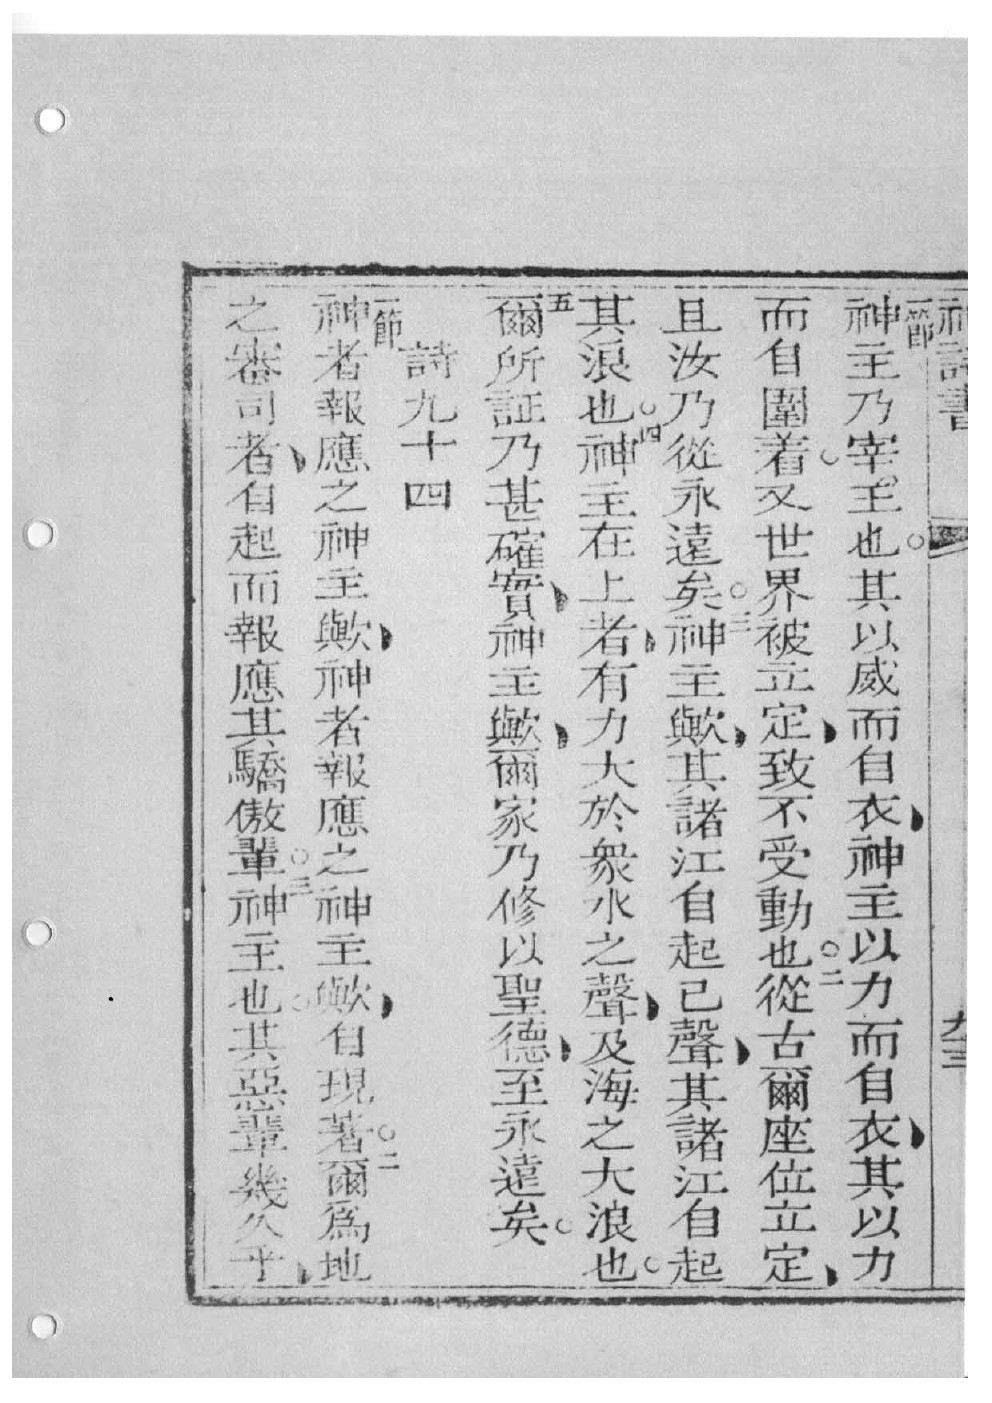 神詩書 九十三
一節神主乃宰王也○其以威而自衣、神主以力而自衣、其以力
而自圍着○又世界被立定、致不受動也○二從古爾座位立定、
且汝乃從永遠矣○三神主歟、其諸江自起已聲、其諸江自起
其浪也○四神主在上者、有力大於衆水之聲、及海之大浪也○
五爾所証乃甚確實、神主歟、爾家乃修以聖德、至永遠矣○
詩九十四
一節神者報應之神主歟、神者報應之神主歟、自現著○二爾爲地
之審司者、自起而報應其驕傲輩○三神主也○其惡輩幾久乎、